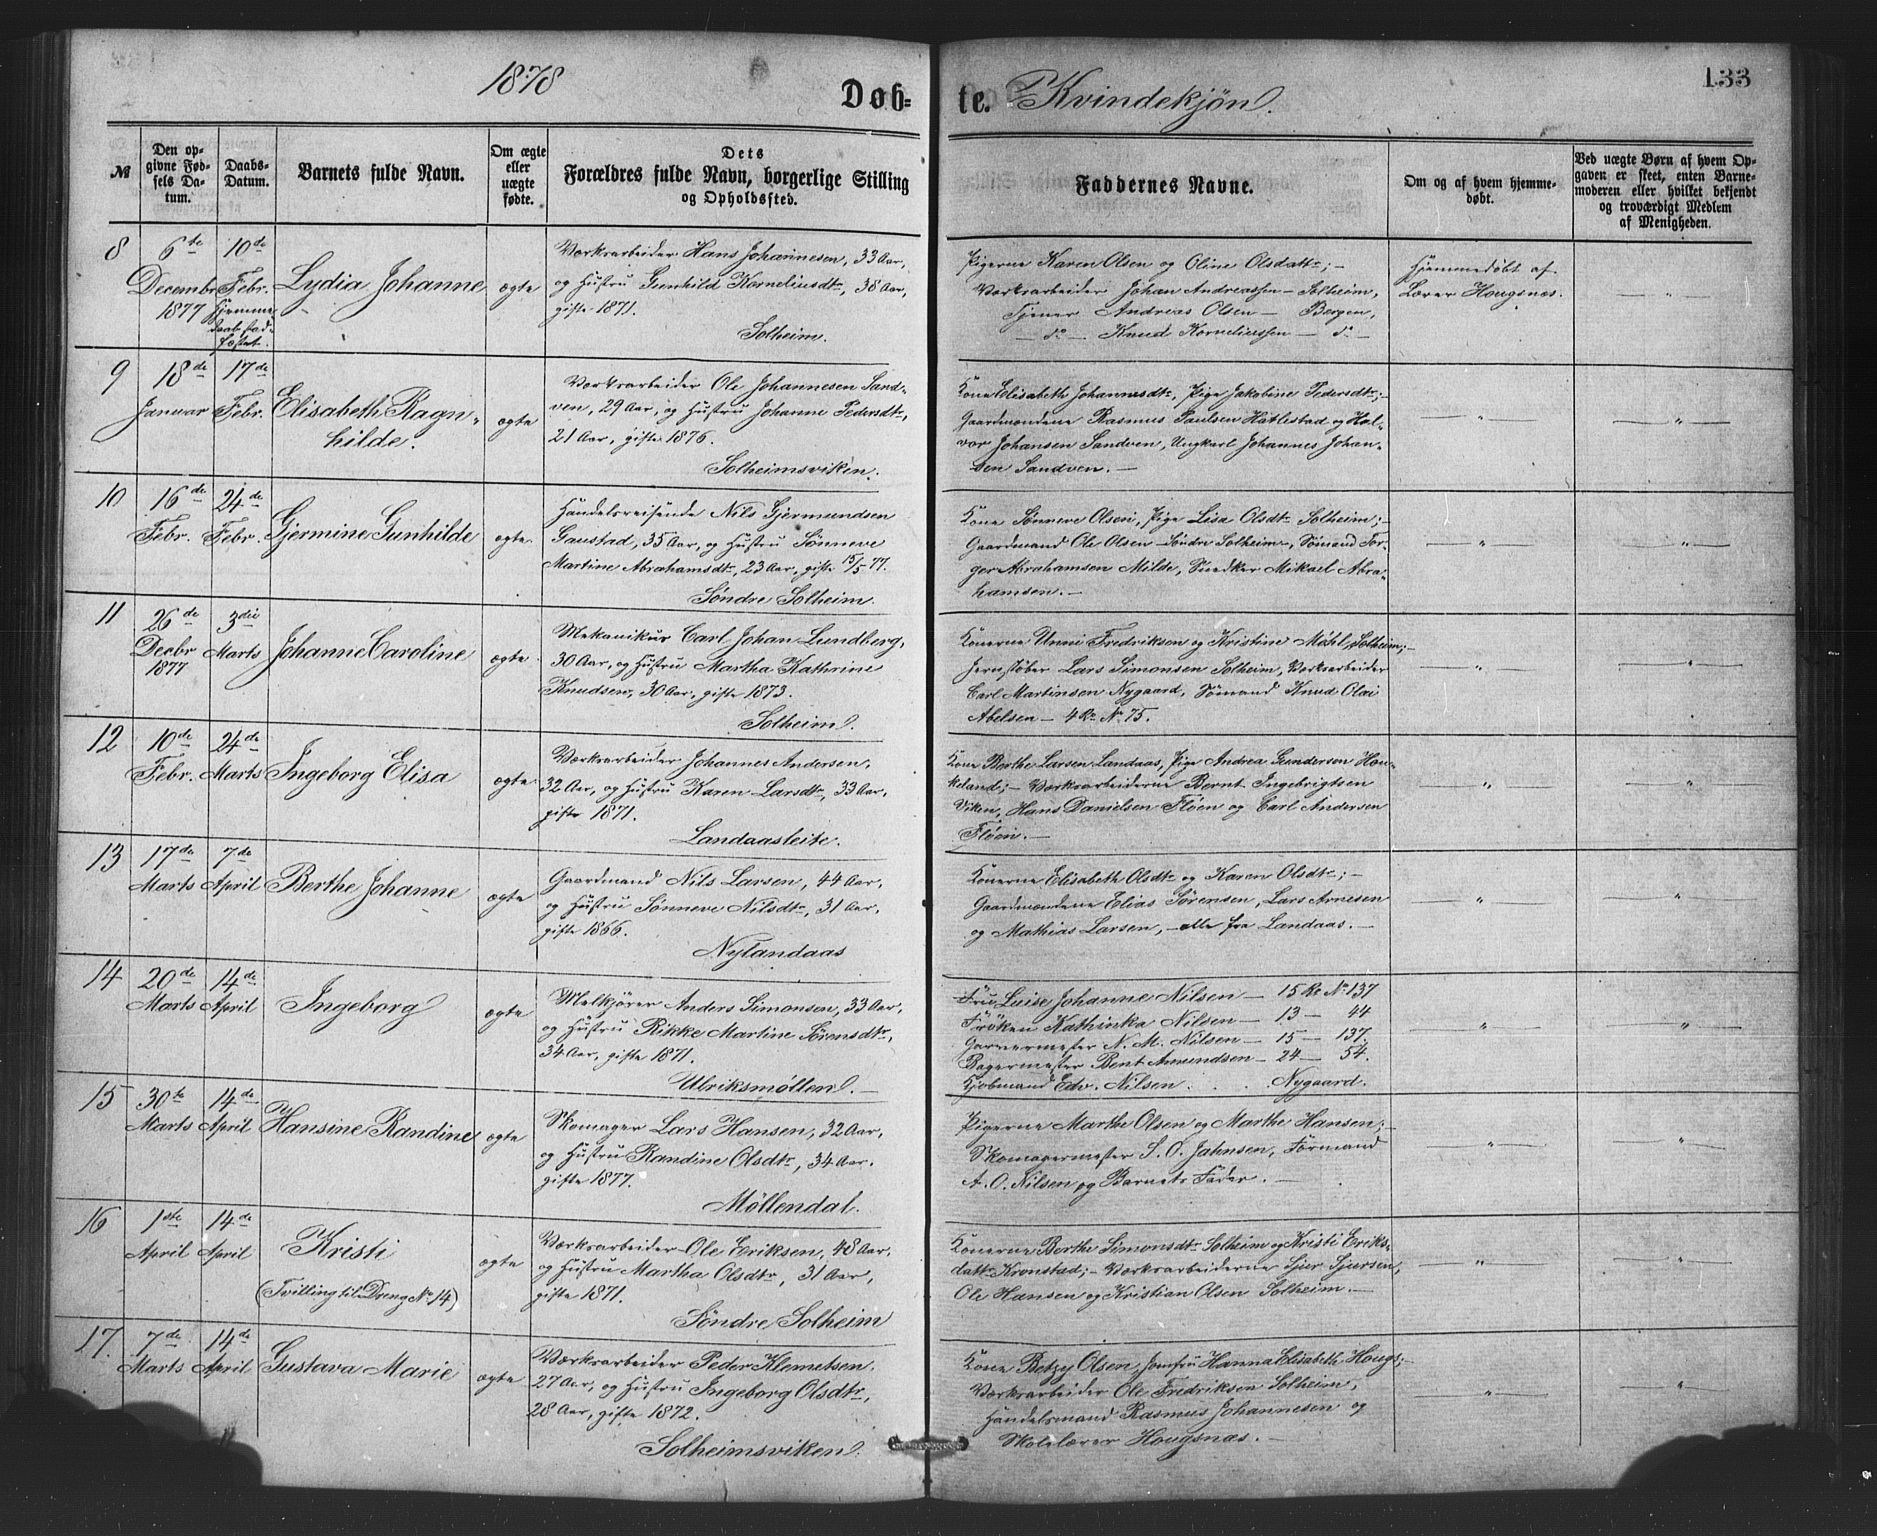 1878
Døb=
te. Kvindekjøn.
133
№
Den op-
givne Fød-
sels Da-
tum.
Daabs-
Datum.
Barnets fulde Navn.
Om ægte
eller
uægte
fødte.
Dets
Forældres fulde Navn, borgerlige Stilling
og Opholdssted.
Faddernes Navne.
Om og af hvem hjemme-
døbt.
Ved uægte Børn af hvem Op-
gaven er skeet, enten Barne-
moderen eller hvilket bekjendt
og troværdigt Medlem
af Menigheden.
8
6te
Decembr
1877
10de
Febr.
Hjemme
daab stad-
fæstet.
Lydia Johanne
ægte
Værksarbeider Hans Johannesen, 33 Aar,
og Hustru Gunhild Kornelius dtr, 38 Aar,
gifte 1871.
Solheim.
Pigerne Karen Olsen og Oline Olsdattr; —
Værksarbeider Johan Andreassen — Solheim,
Tjener Andreas Olsen — Bergen,
— do — Knud Korneliussen — do —
Hjemmedøbt af
Lærer Hougsnæs.
— " —
9
18de
Januar
17de
Febr.
Elisabeth Ragn-
hilde.
ægte
Værksarbeider Ole Johannesen Sand-
ven, 29 Aar, og Hustru Johanne Pedersdtr,
21 Aar, gifte 1876.
Solheimsviken.
Kone Elisabeth Johannesdtr, Pige Jakobine Pedersdtr; —
Gaardmændene Rasmus Paulsen Hatlestad og Hal-
vor Johansen Sandven, Ungkarl Johannes Johan-
sen Sandven. —
— " —
— " —
10
16de
Febr.
24de
Febr.
Gjermine Gunhilde
ægte.
Handelsreisende Nils Gjermundsen
Gaustad, 35 Aar, og Hustru Sønneve
Martine Abrahamsdtr, 23 Aar, gifte 15/5 77.
Søndre Solheim.
Kone Sønneve Olsen, Pige Lisa Olsdtr Solheim; —
Gaardmand Ole Olsen Søndre Solheim, Sømand Tor-
ger Abrahamsen Milde, Snedker Mikael Abra-
hamsen. —
— " —
— " —
11
26de
Decbr
1877
3die
Marts
Johanne Caroline
ægte.
Mekanikus Carl Johan Lundberg,
30 Aar, og Hustru Martha Kathrine
Knudsen, 30 Aar, gifte 1873.
Solheim.
Konerne Unni Fredriksen og Kristine Møhl, Solheim; —
Jernstøber Lars Simonsen Solheim, Værksarbeider
Carl Martinsen Nygaard, Sømand Knud Olai
Abelsen — 4 Re No 75.
"
— " —
12
10de
Febr.
24de
Marts
Ingeborg Elisa
ægte
Værksarbeider Johannes Andersen,
32 Aar, og Hustru Karen Larsdtr, 33 Aar,
gifte 1871.
Landaasleite.
Kone Berthe Larsen Landaas, Pige Andrea Gundersen Hou-
keland; — Værksarbeiderne Bernt Ingebrigtsen
Viken, Hans Danielsen Fløen og Carl Andersen
Fløen. —
— " —
"
13
17de
Marts
7de
April
Berthe Johanne
ægte
Gaardmand Nils Larsen, 44 Aar,
og Hustru Sønneve Nilsdtr, 31 Aar,
gifte 1866.
Nylandaas
Konerne Elisabeth Olsdtr og Karen Olsdtr; —
Gaardmændene Elias Sørensen, Lars Arnesen
og Mathias Larsen, — alle fra Landaas. —
— " —
— " —
14
20de
Marts
14de
April
Ingeborg
ægte
Melkjører Anders Simonsen, 33 Aar,
og Hustru Rikke Martine Sørensdtr,
34 Aar, gifte 1871.
Ulriksmøllen. —
Fru Luise Johanne Nilsen — 15 Re No 137
Frøken Kathinka Nilsen — 13 — 44
Garvermester N. M. Nilsen — 15 — 137.
Bagermester Bent Amundsen — 24 — 54.
Kjøbmand Edv. Nilsen . . . Nygaard.
— " —
— " —
15
30te
Marts
14de
April
Hansine Randine
ægte
Skomager Lars Hansen, 32 Aar,
og Hustru Randine Olsdtr, 34 Aar.
gifte 1877.
Møllendal.
Pigerne Marthe Olsen og Marthe Hansen; —
Skomagermester S. O. Jahnsen, Formand
A. O. Nilsen og Barnets Fader. —
— " —
— " —
16
1ste
April
14de
April
Kristi
(Tvilling til Dreng No 14)
ægte
Værksarbeider Ole Eriksen, 48 Aar,
og Hustru Martha Olsdtr, 31 Aar,
gifte 1871.
Søndre Solheim
Konerne Berthe Simonsdtr Solheim og Kristi Eriks-
dattr Kronstad; — Værksarbeiderne Sjur Sjursen,
Ole Hansen og Kristian Olsen Solheim. —
— " —
— " —
17.
7de
Marts
14de
April
Gustava Marie
ægte
Værksarbeider Peder Klemetsen.
27 Aar, og Hustru Ingeborg Olsdtr,
28 Aar, gifte 1872.
Solheimsviken.
Kone Betzy Olsen, Jomfru Hanna Elisabeth Hougs; —
Værksarbeider Ole Fredriksen Solheim,
Handelsmand Rasmus Johannesen og
Skolelærer Hougsnæs. —
— " —
— " —